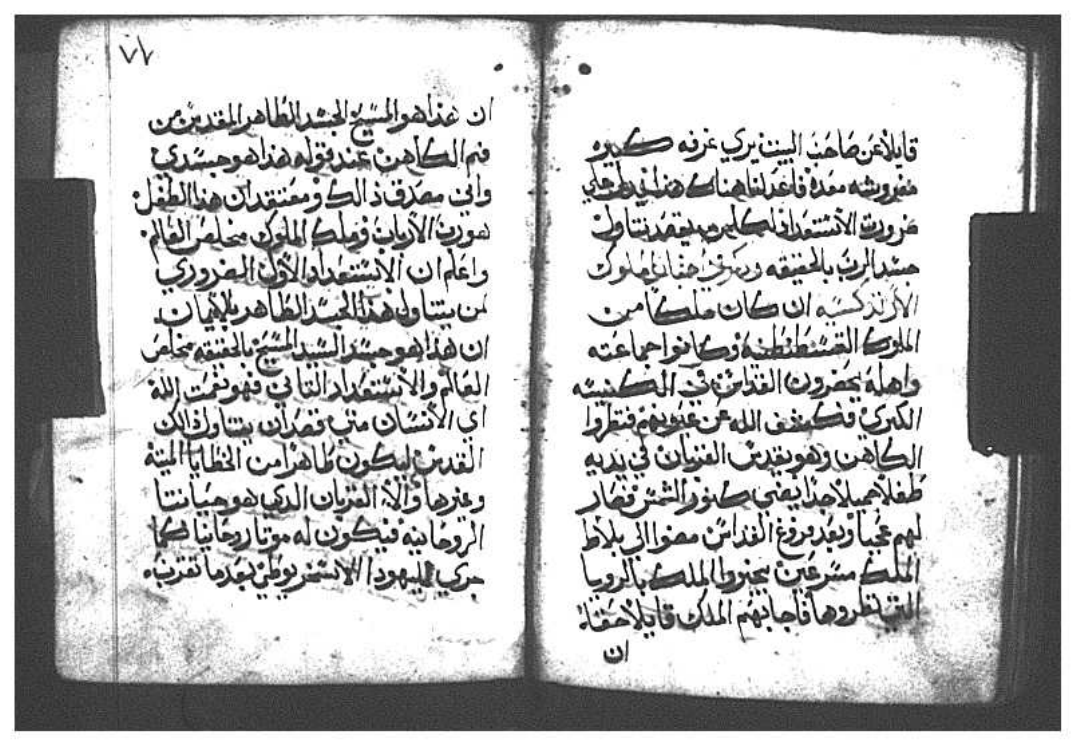 قايلاً عن صاحب البيت يري غرفه كبيره
مفروشه معده فاعدلنا هناك هذا يدل علي
ضرورت الاستعداد لكلمن يقصد يتناول
جسد الرب بالحقيقه
ان كان ملكًا من
الملوك القسطنطنيه وكانوا جماعته
واهله يحضرون القداس في الكنيسه
الكبري فكشف الله عن عيونهم فنظروا
الكاهن وهو يقدس القربان في يديه
طفلاً جميلاً جدا يضي كنور الشمس فصار
لهم عجبا وبعد فروغ القداس مضوا الي بلاط
الملك مسرعين يخبروا الملك بالرويا
التي نظروها فاجابهم الملك قايلاً حقاً
ان
٧٦
ان هذا هو المسيح الجسد الطاهر المقدس من
فم الكاهن عند قوله هذا هو جسدي
واني مصدق ذالك ومعتقد ان هذا الطفل
هو رب الارباب وملك الملوك مخلص العالم
واعلم ان الاستعداد الاول الضروري
لمن يتناول هذا الجسد الطاهر بالايمان
ان هذا هو جسد السيد المسيح بالحقيقه مخلص
العالم والاستعداد التاني فهو نعمت الله
اي الانسان متي قصد ان يتناول لك
القدس ليكون طاهرا من الخطايا الميتة
وغيرها والا القربان الدي هو حياتنا
الروحانيه فيكون له موتا روحانيا كما
جري لليهودا الاسخريوطي بعد ما تقرب